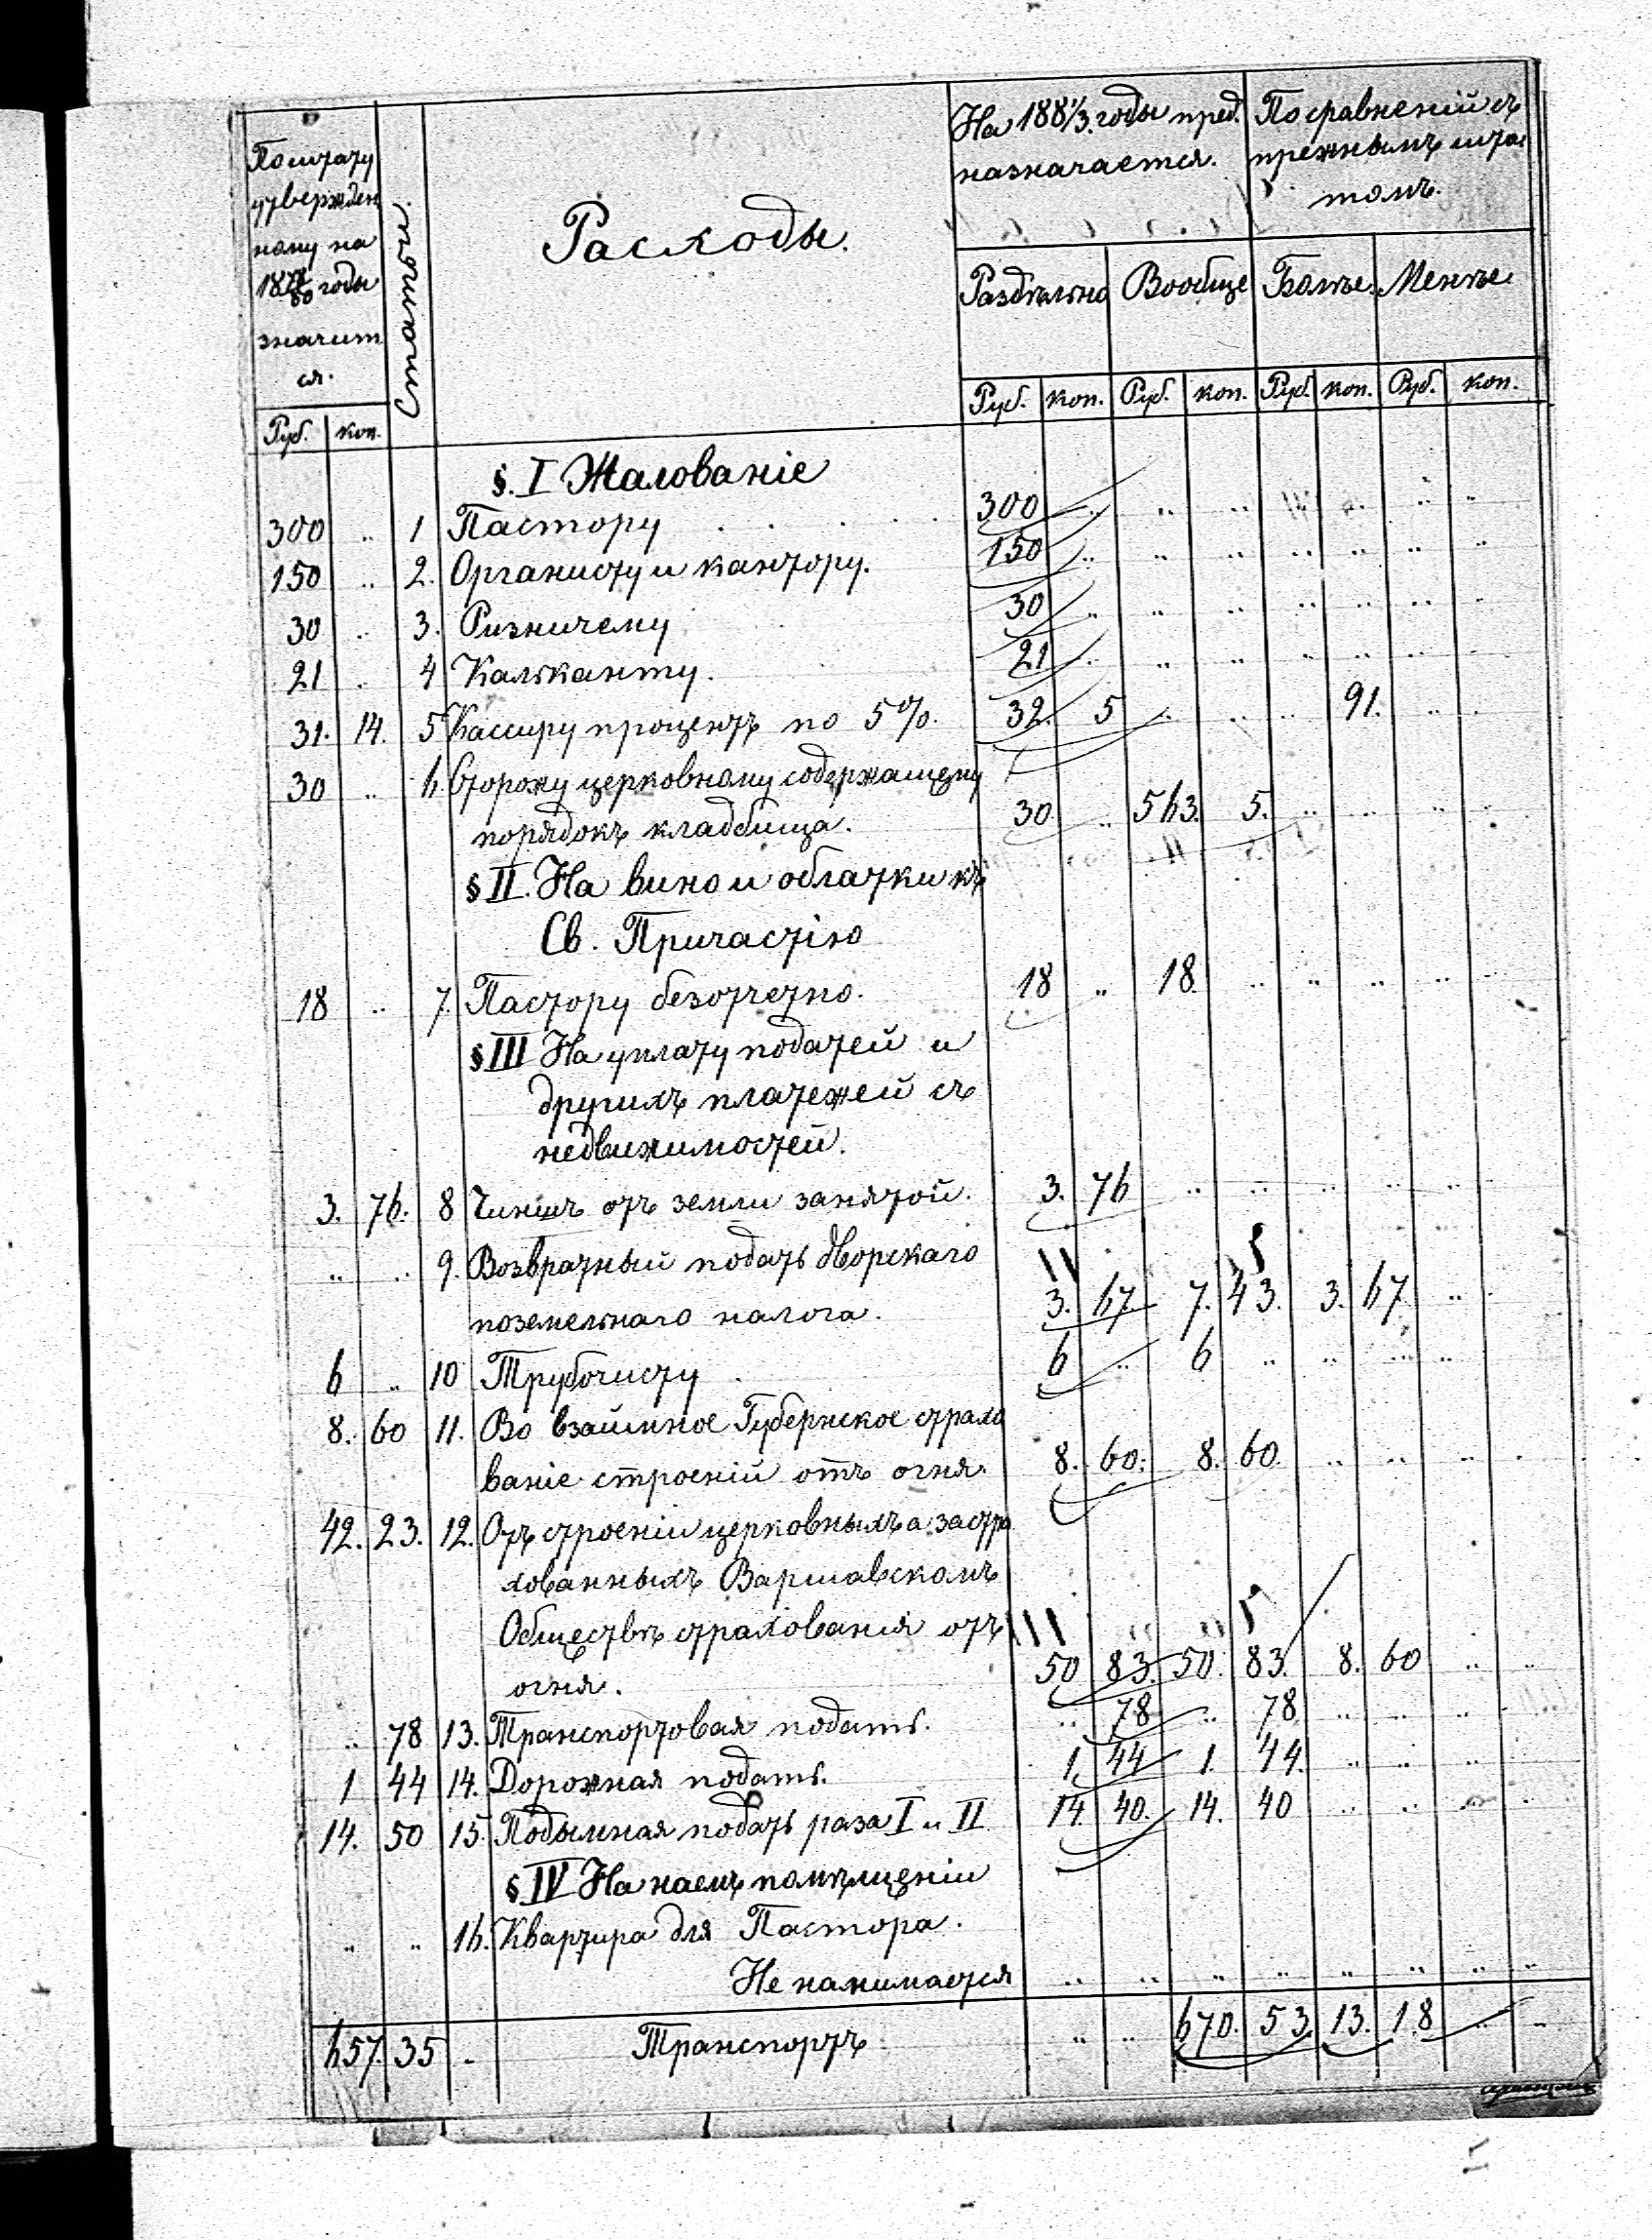 По штату
утвержден
ному на
1878/80 годы
значит
ся.
Статьи.
Расходы.
На 1881/3. годы пред.
назначается.
По сравненiй съ
прежнымъ шта
томъ.
Раздѣльно Вообще Болѣе. Менѣе
Руб. коп. Руб. коп. Руб. коп. Руб. коп. Руб. коп.
§. I Жалованiе
300 .. 1 Пастору . . . . . 300 .. .. .. .. .. .. ..
150 .. 2. Органисту и кантору. 150 .. .. .. .. .. .. ..
30 .. 3. Ризничему 30 .. .. .. .. .. .. ..
21 .. 4 Кальканту. 21 .. .. .. .. .. .. ..
31. 14. 5 Кассиру процентъ по 5%. 32. 5 .. .. .. 91. .. ..
30 .. 6. Сторожу церковному содержащему
порядокъ кладбища. 30 .. 563. 5. .. .. .. ..
§ II. На вино и облатки къ
Св. Причастiю
18 .. 7. Пастору безотчетно. 18 .. 18. .. .. .. .. ..
§ III На уплату податей и
другихъ платежей съ
недвижимостей.
3. 76. 8 Чиншъ отъ земли занятой. 3. 76 .. .. .. .. .. ..
.. .. 9. Возвратный подать дворскаго
поземельнаго налога. 3. 67 7. 43. 3. 67 .. ..
6 .. 10 Трубочисту 6 .. 6 .. .. .. .. ..
8. 60 11. Во взаимное Губернское страхо
ванiе строенiй отъ огня. 8. 60. 8. 60. .. .. .. ..
42. 23. 12. Отъ строенiи церковныхъ а застра
хованныхъ Варшавскомъ
Обществѣ страхованiя отъ
огня. 50 83. 50. 83. 8. 60 .. ..
.. 78 13. Транспортовая подать. .. 78 .. 78 .. .. .. ..
1 44 14. Дорожная подать. 1. 44 1. 44. .. .. .. ..
14. 50 15. Подымная подать раза I и II 14. 40. 14. 40 .. .. .. ..
§. IV На наемъ помѣщенiи
.. .. 16. Квартира для Пастора.
Не нанимается .. .. .. .. .. .. .. ..
657. 35 .. Транспортъ .. .. 670. 53. 13. 18 .. ..